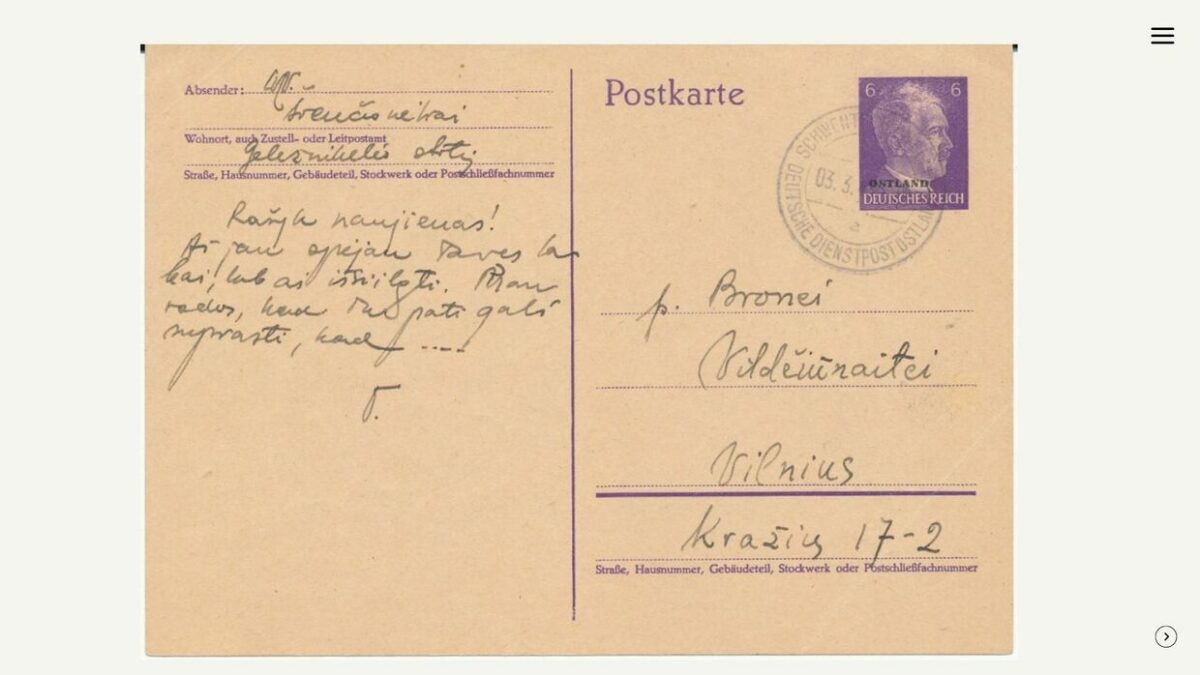 Absender:
Švenčionėliai
Wohnort, auch Zustell- oder Leitpostamt
Geležinkelio
Straße, Hausnummer, Gebäudeteil, Stockwerk oder Postschließfachnummer
Rašyk naujienas!
Aš jau spėjau Taves la
bai, labai išsiilgti. Man
rodos, kad Tu pati gali
suprasti, kad ....
V.
Postkarte
6 6
OSTLAND
DEUTSCHES REICH
03. 3.
DEUTSCHE DIENSTPOST OSTLAND
a
p. Bronei
Vildžiūnaitei
Vilnius
Kražių 17-2
Straße, Hausnummer, Gebäudeteil, Stockwerk oder Postschließfachnummer